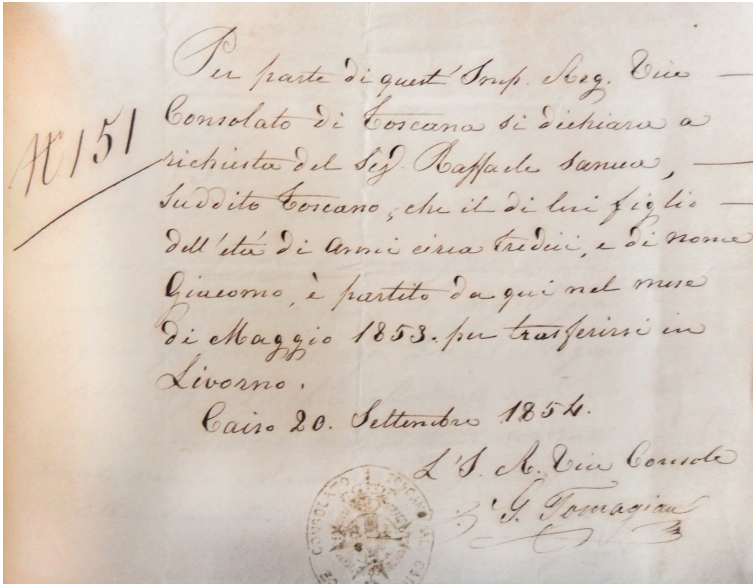 N 151
Per parte di quest' Imp. Reg. Vice
Consolato di Toscana si dichiara a
richiesta del Sig. Raffaele Sanua,
Suddito Toscano, che il di lui figlio
dell'età di Anni circa tredici, e di nome
Giacomo, è partito da qui nel mese
di Maggio 1853. per trasferirsi in
Livorno.
Cairo 20. Settembre 1854.
L'I. R. Vice Console
G. Tomagian
CONSOLATO